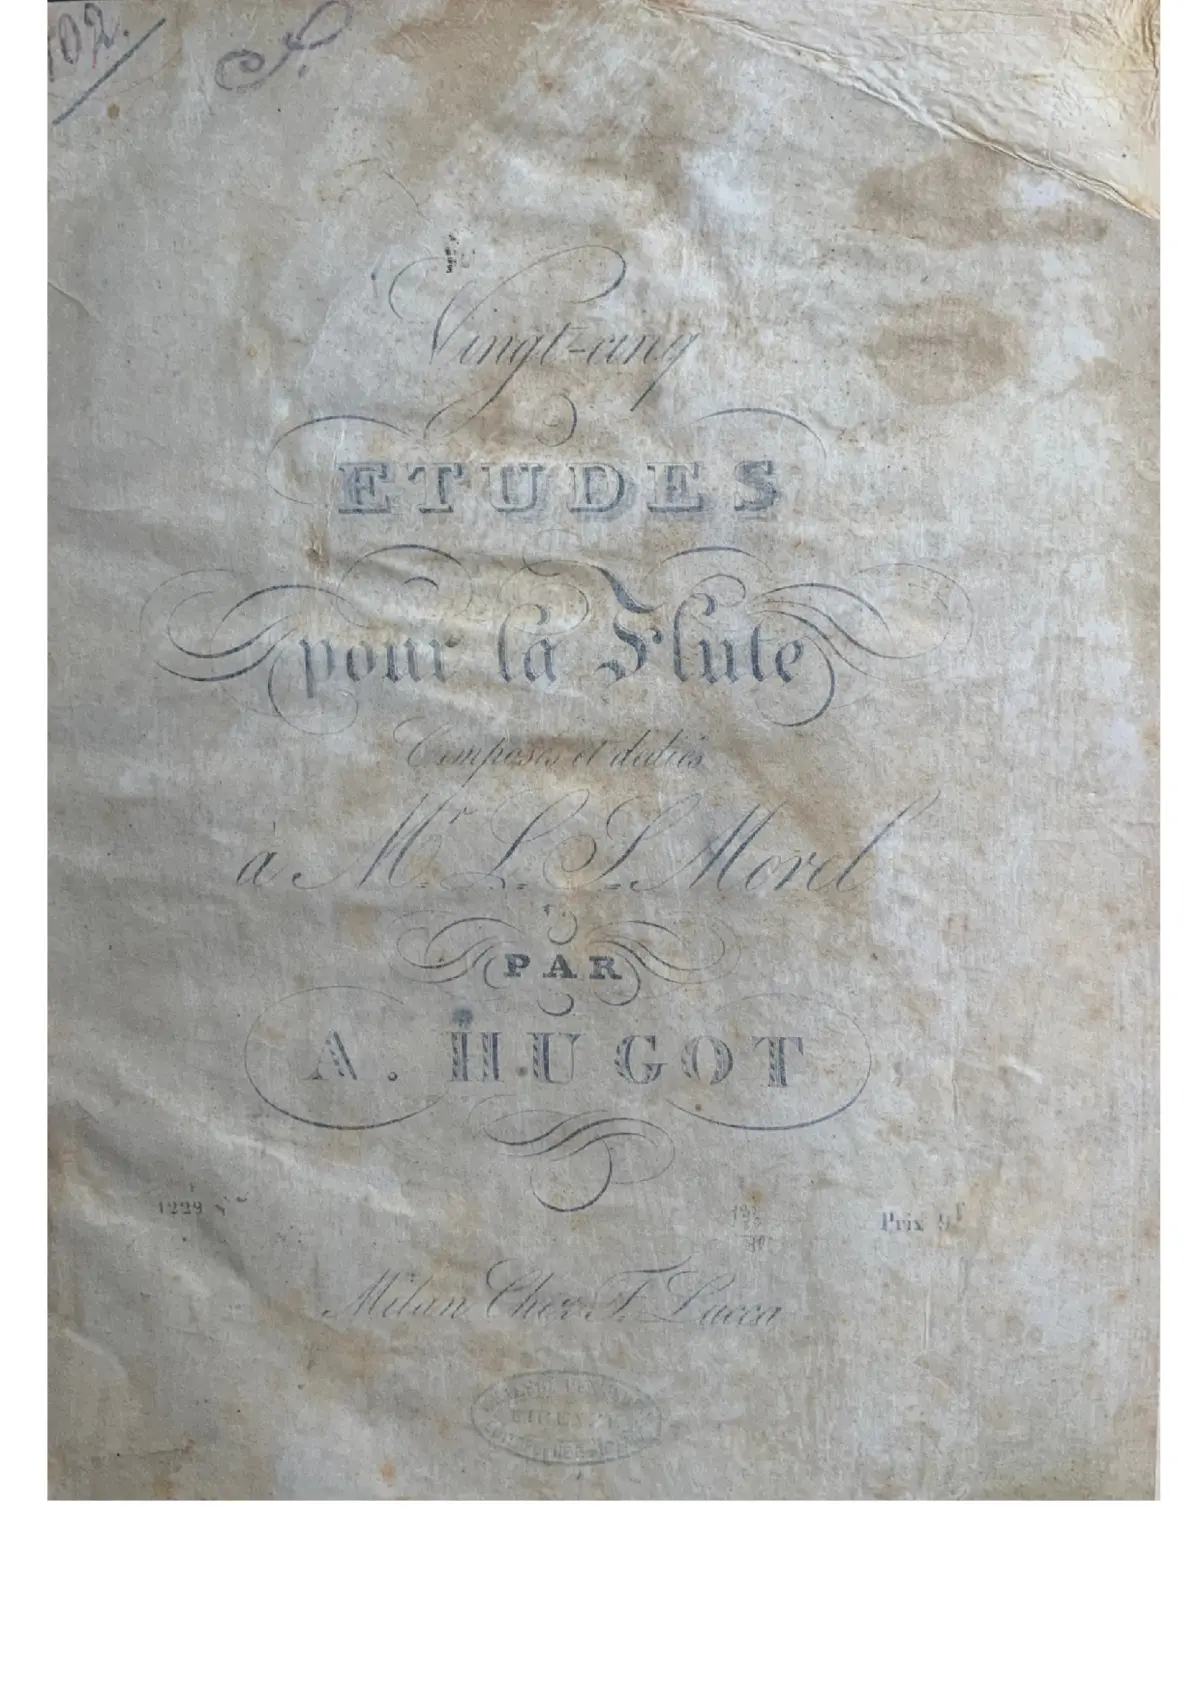 102.
Vingt-cinq
ETUDES
pour la Flute
Composés et dediés
à Mr. L. S. Morel
PAR
A. HUGOT
1229
Prix 9f
Milan Chez F. Lucca
FIRENZE